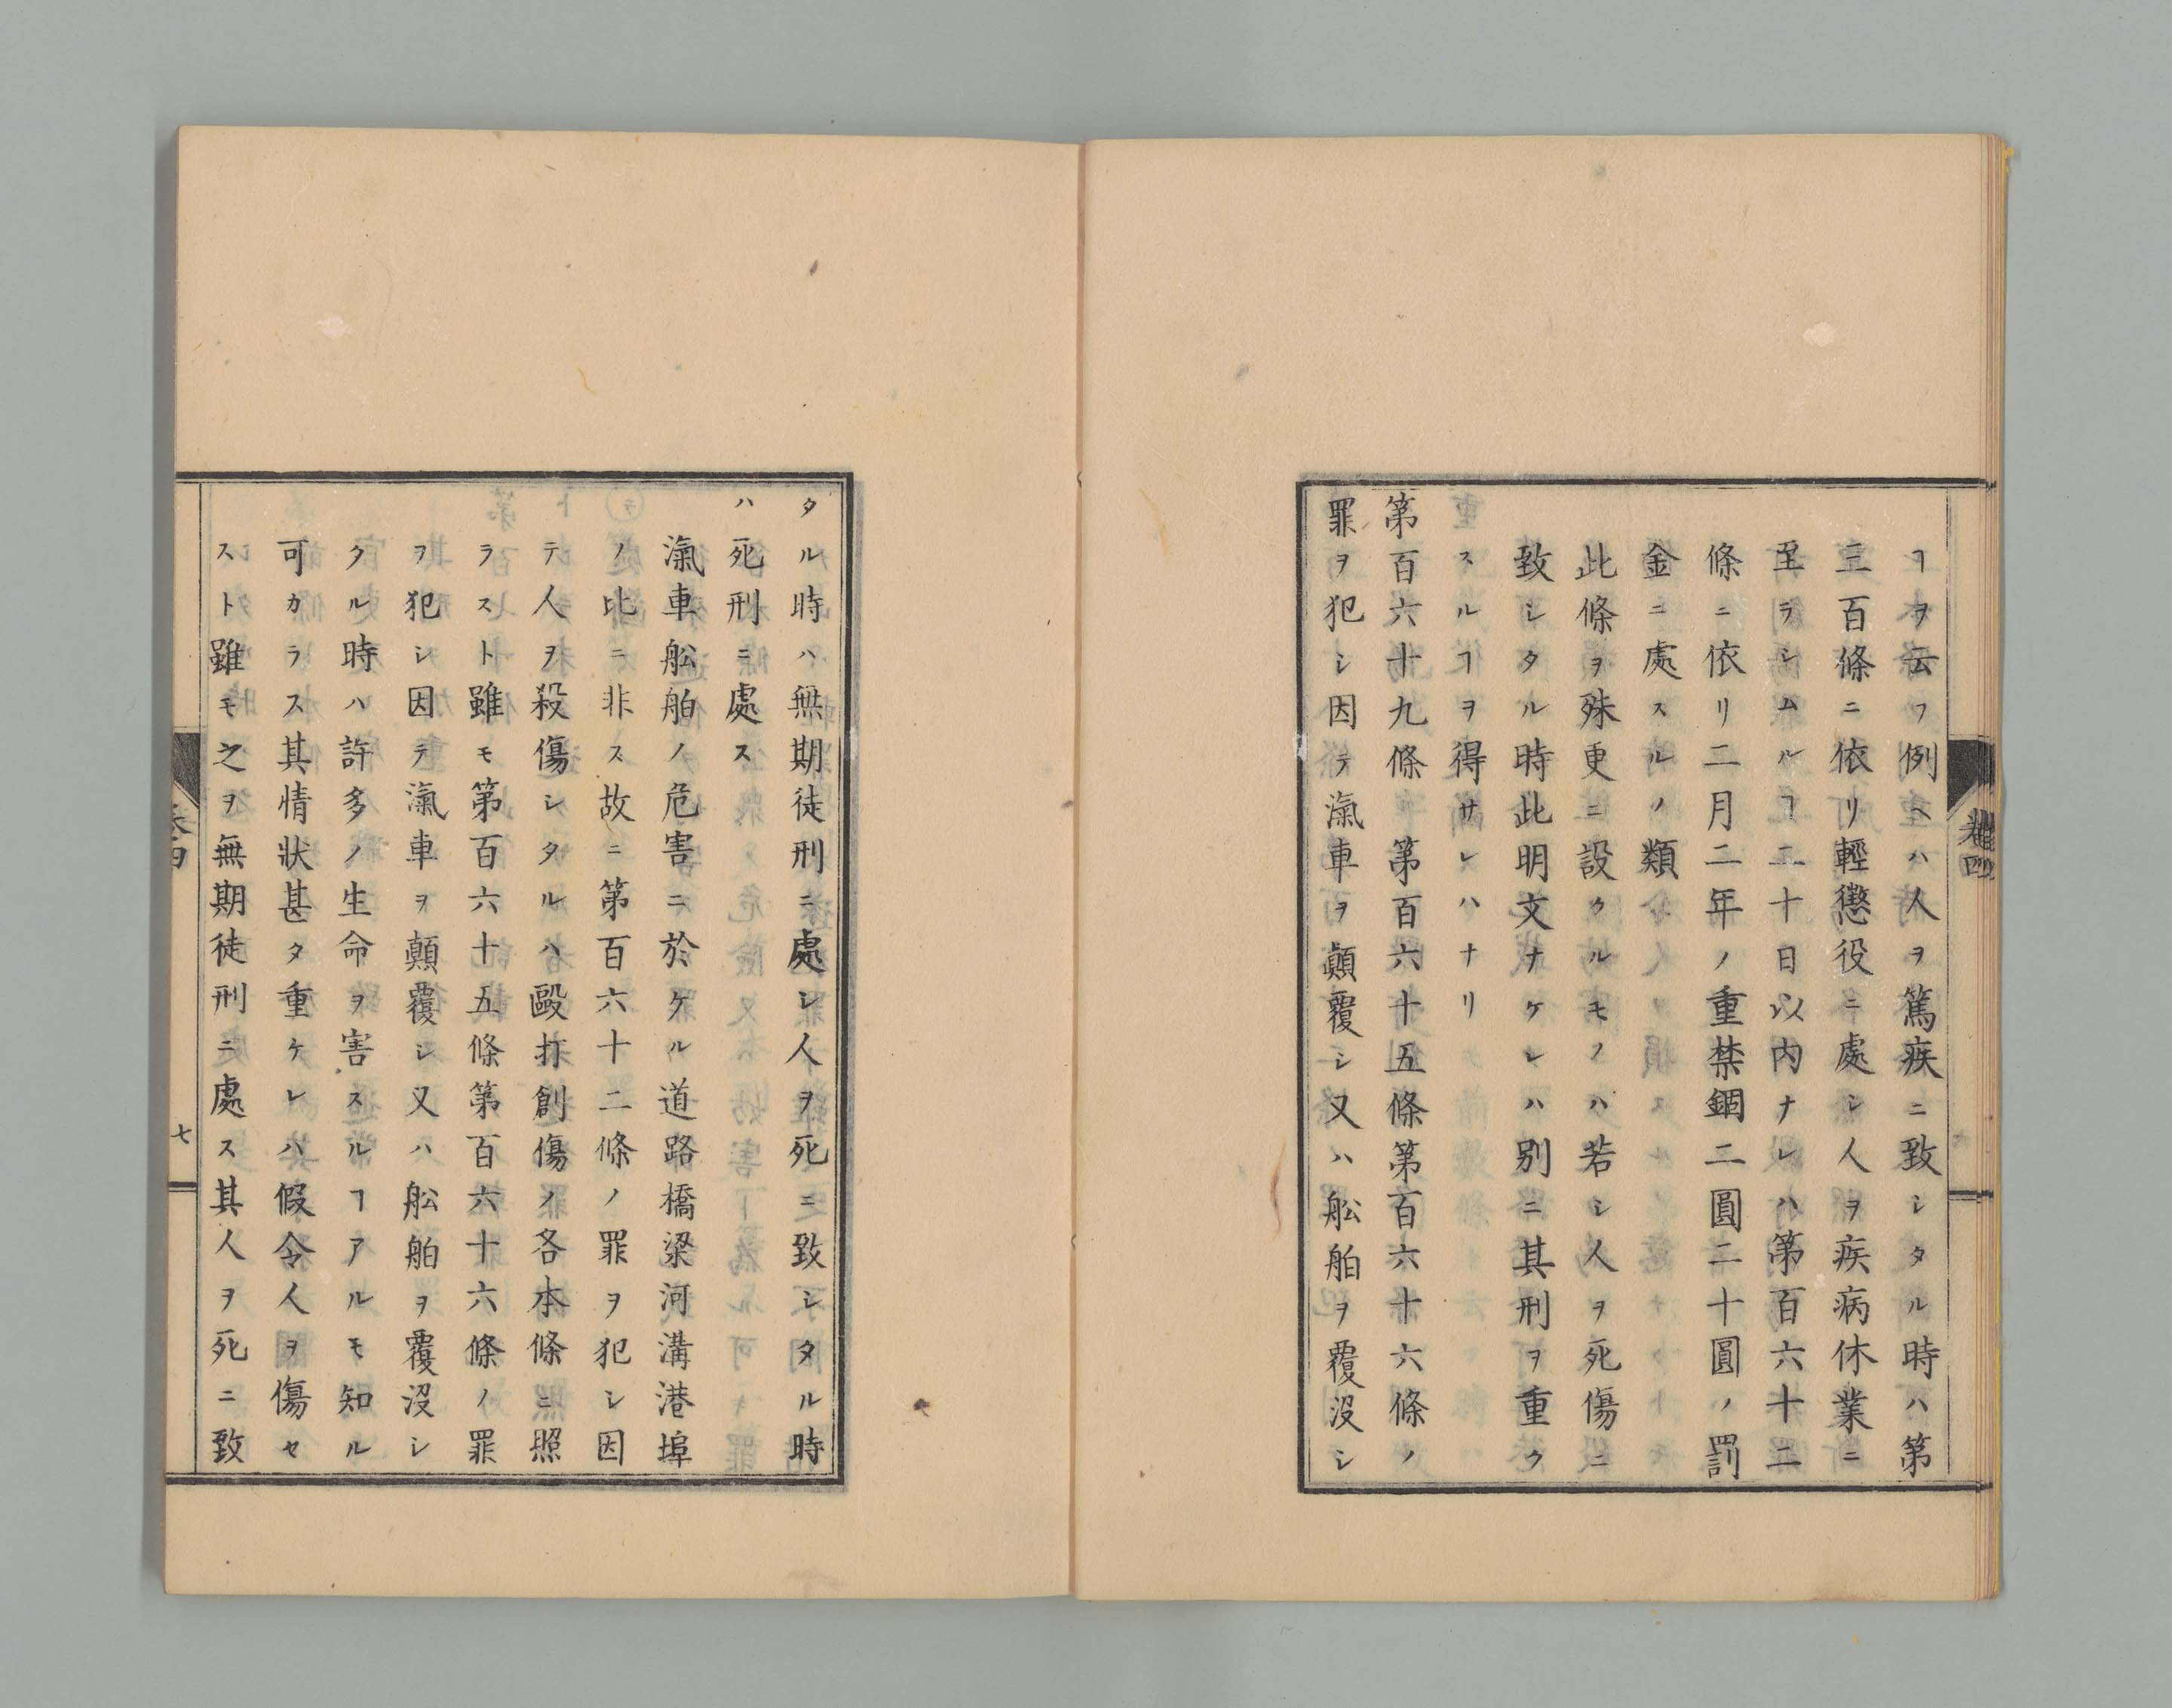 ヿヲ云フ例ヘハ人ヲ篤疾ニ致シタル時ハ第
三百條ニ依リ輕懲役ニ處シ人ヲ疾病休業ニ
至ラシムルヿ二十日以内ナレハ第百六十二
條ニ依リ二月二年ノ重禁錮二圓二十圓ノ罰
金ニ處スルノ類
此條ヲ殊更ニ設クルモノハ若シ人ヲ死傷ニ
致シタル時此明文ナケレハ別ニ其刑ヲ重ク
スルヿヲ得サレハナリ
第百六十九條 第百六十五條第百六十六條ノ
罪ヲ犯シ因テ滊車ヲ顚覆シ又ハ舩舶ヲ覆沒シ
卷四
タル時ハ無期徒刑ニ處シ人ヲ死ニ致シタル時
ハ死刑ニ處ス
滊車舩舶ノ危害ニ於ケル道路橋梁河溝港埠
ノ比ニ非ス故ニ第百六十二條ノ罪ヲ犯シ因
テ人ヲ殺傷シタルハ毆打創傷ノ各本條ニ照
ラスト雖モ第百六十五條第百六十六條ノ罪
ヲ犯シ因テ滊車ヲ顚覆シ又ハ舩舶ヲ覆沒シ
タル時ハ許多ノ生命ヲ害スルヿアルモ知ル
可カラス其情狀甚タ重ケレハ假令人ヲ傷セ
スト雖モ之ヲ無期徒刑ニ處ス其人ヲ死ニ致
卷四
七